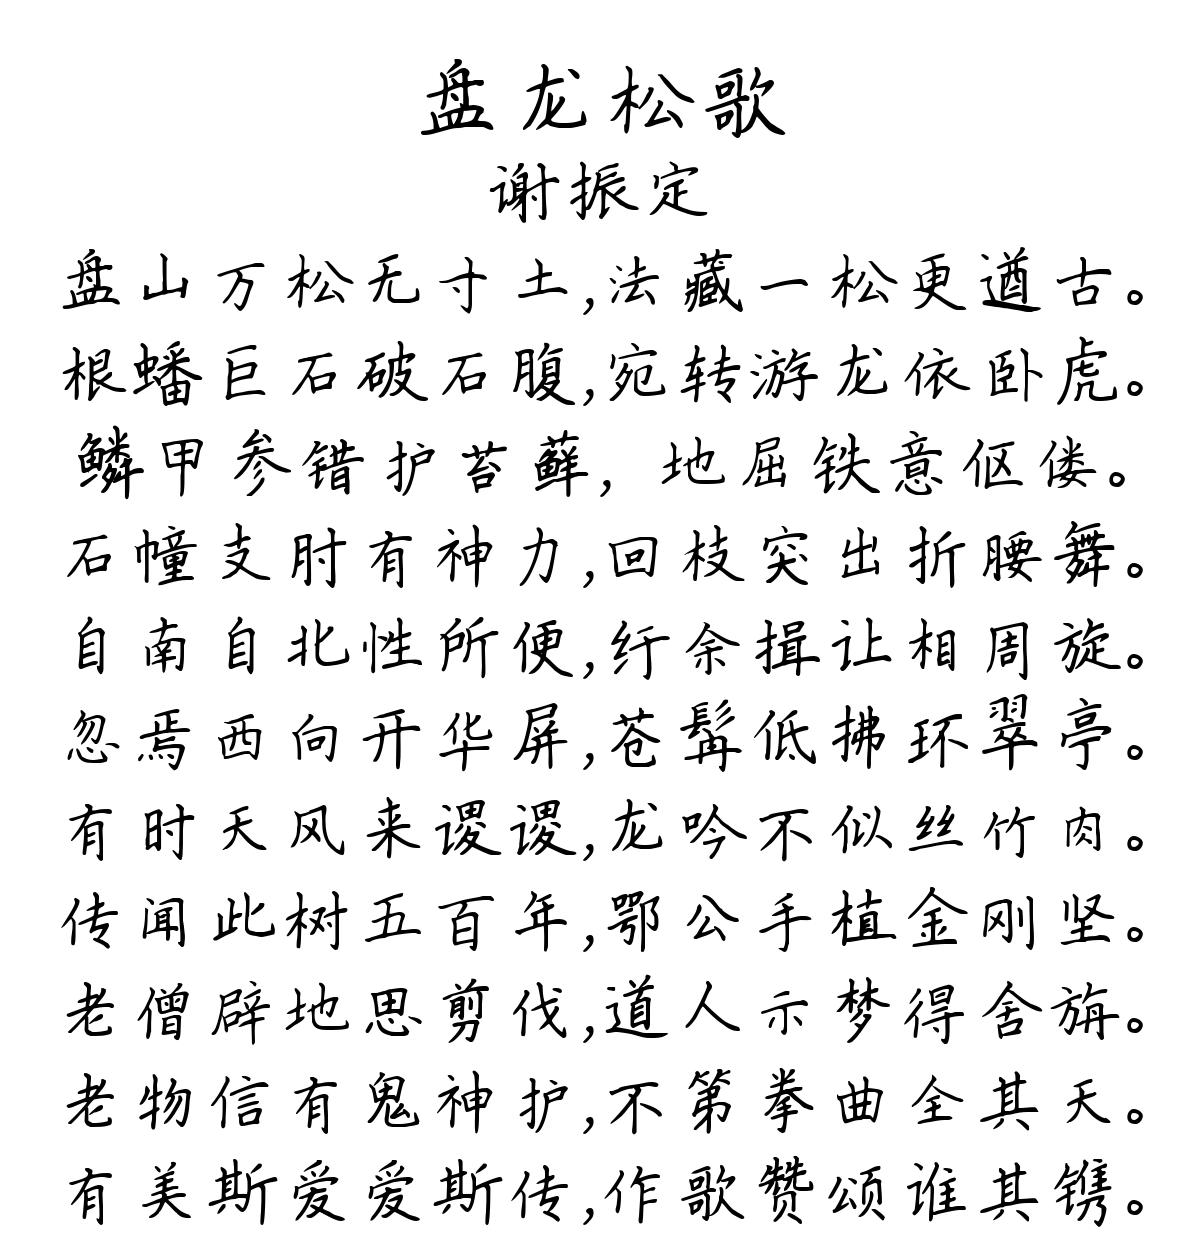 盘龙松歌
谢振定
盘山万松无寸土,法藏一松更遒古。
根蟠巨石破石腹,宛转游龙依卧虎。
鳞甲参错护苔藓,地屈铁意伛偻。
石幢支肘有神力,回枝突出折腰舞。
自南自北性所便,纡余揖让相周旋。
忽焉西向开华屏,苍髯低拂环翠亭。
有时天风来谡谡,龙吟不似丝竹肉。
传闻此树五百年,鄂公手植金刚坚。
老僧辟地思剪伐,道人示梦得舍旃。
老物信有鬼神护,不第拳曲全其天。
有美斯爱爱斯传,作歌赞颂谁其镌。